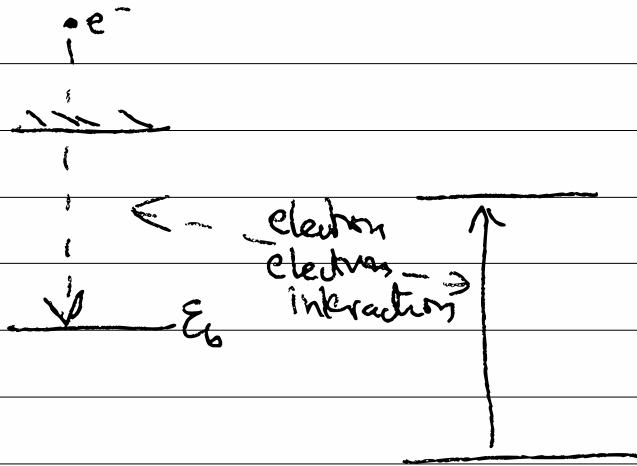 e⁻
electron
electron
interaction
ε_b